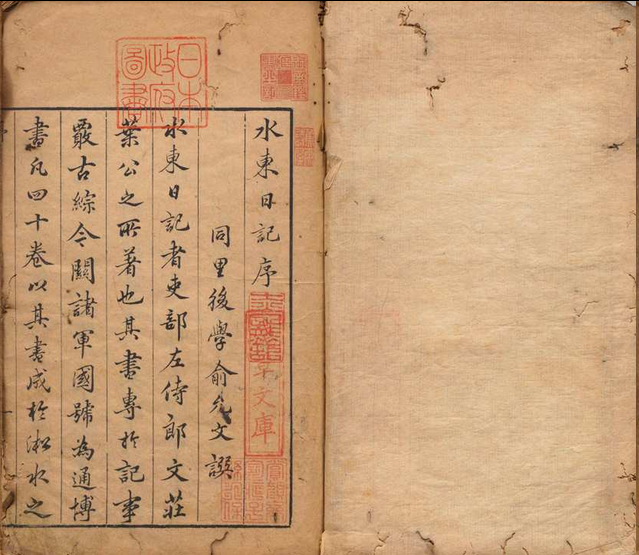 水東日記序
同里後學俞允文譔
水東日記者吏部左侍郎文莊
葉公之所著也其書專於記事
覈古綜今關諸軍國號為通博
書凡四十卷以其書成於淞水之
日本
政府
圖書
文庫